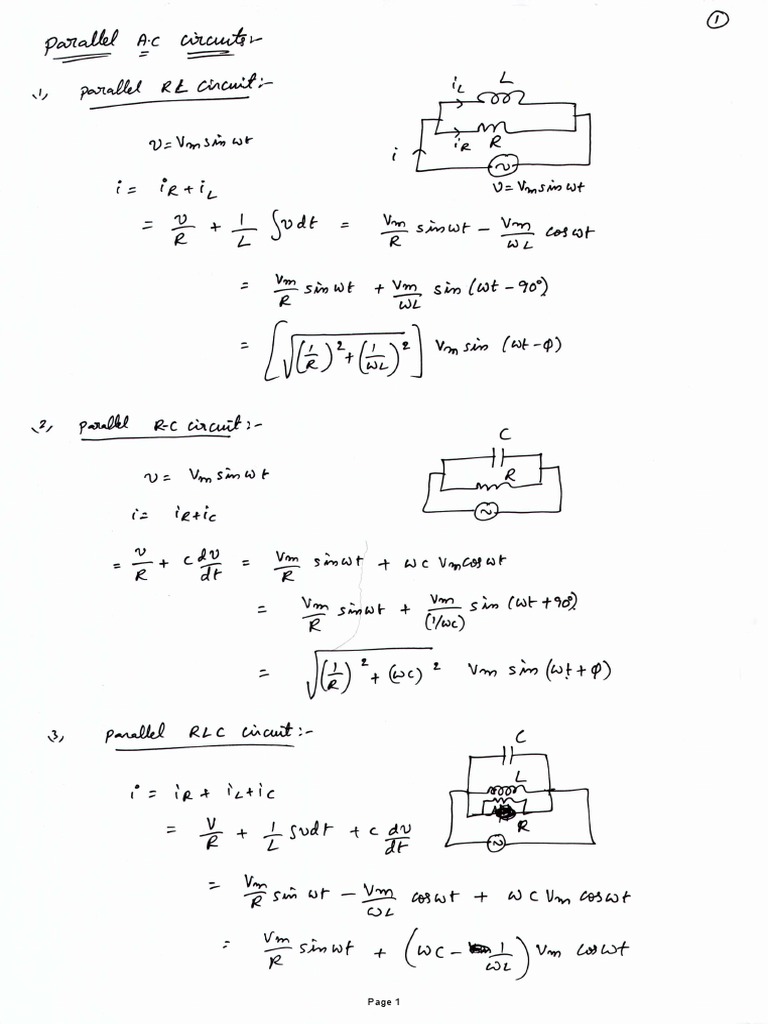 ①
Parallel A.C circuits:-
1, Parallel RL circuit:-
L
iL
iR R
i
v = Vm sin ωt
v = Vm sin ωt
i = iR + iL
= v/R + 1/L ∫v dt = Vm/R sin ωt − Vm/ωL cos ωt
= Vm/R sin ωt + Vm/ωL sin (ωt − 90°)
= [√((1/R)² + (1/ωL)²)] Vm sin (ωt − φ)
2, Parallel R-C circuit:-
C
R
v = Vm sin ωt
i = iR + iC
= v/R + C dv/dt = Vm/R sin ωt + ωC Vm cos ωt
= Vm/R sin ωt + Vm/(1/ωC) sin (ωt + 90°)
= √((1/R)² + (ωC)²) Vm sin (ωt + φ)
3, Parallel RLC circuit:-
C
L
R
i = iR + iL + iC
= V/R + 1/L ∫v dt + C dv/dt
= Vm/R sin ωt − Vm/ωL cos ωt + ωC Vm cos ωt
= Vm/R sin ωt + (ωC − 1/ωL) Vm cos ωt
Page 1